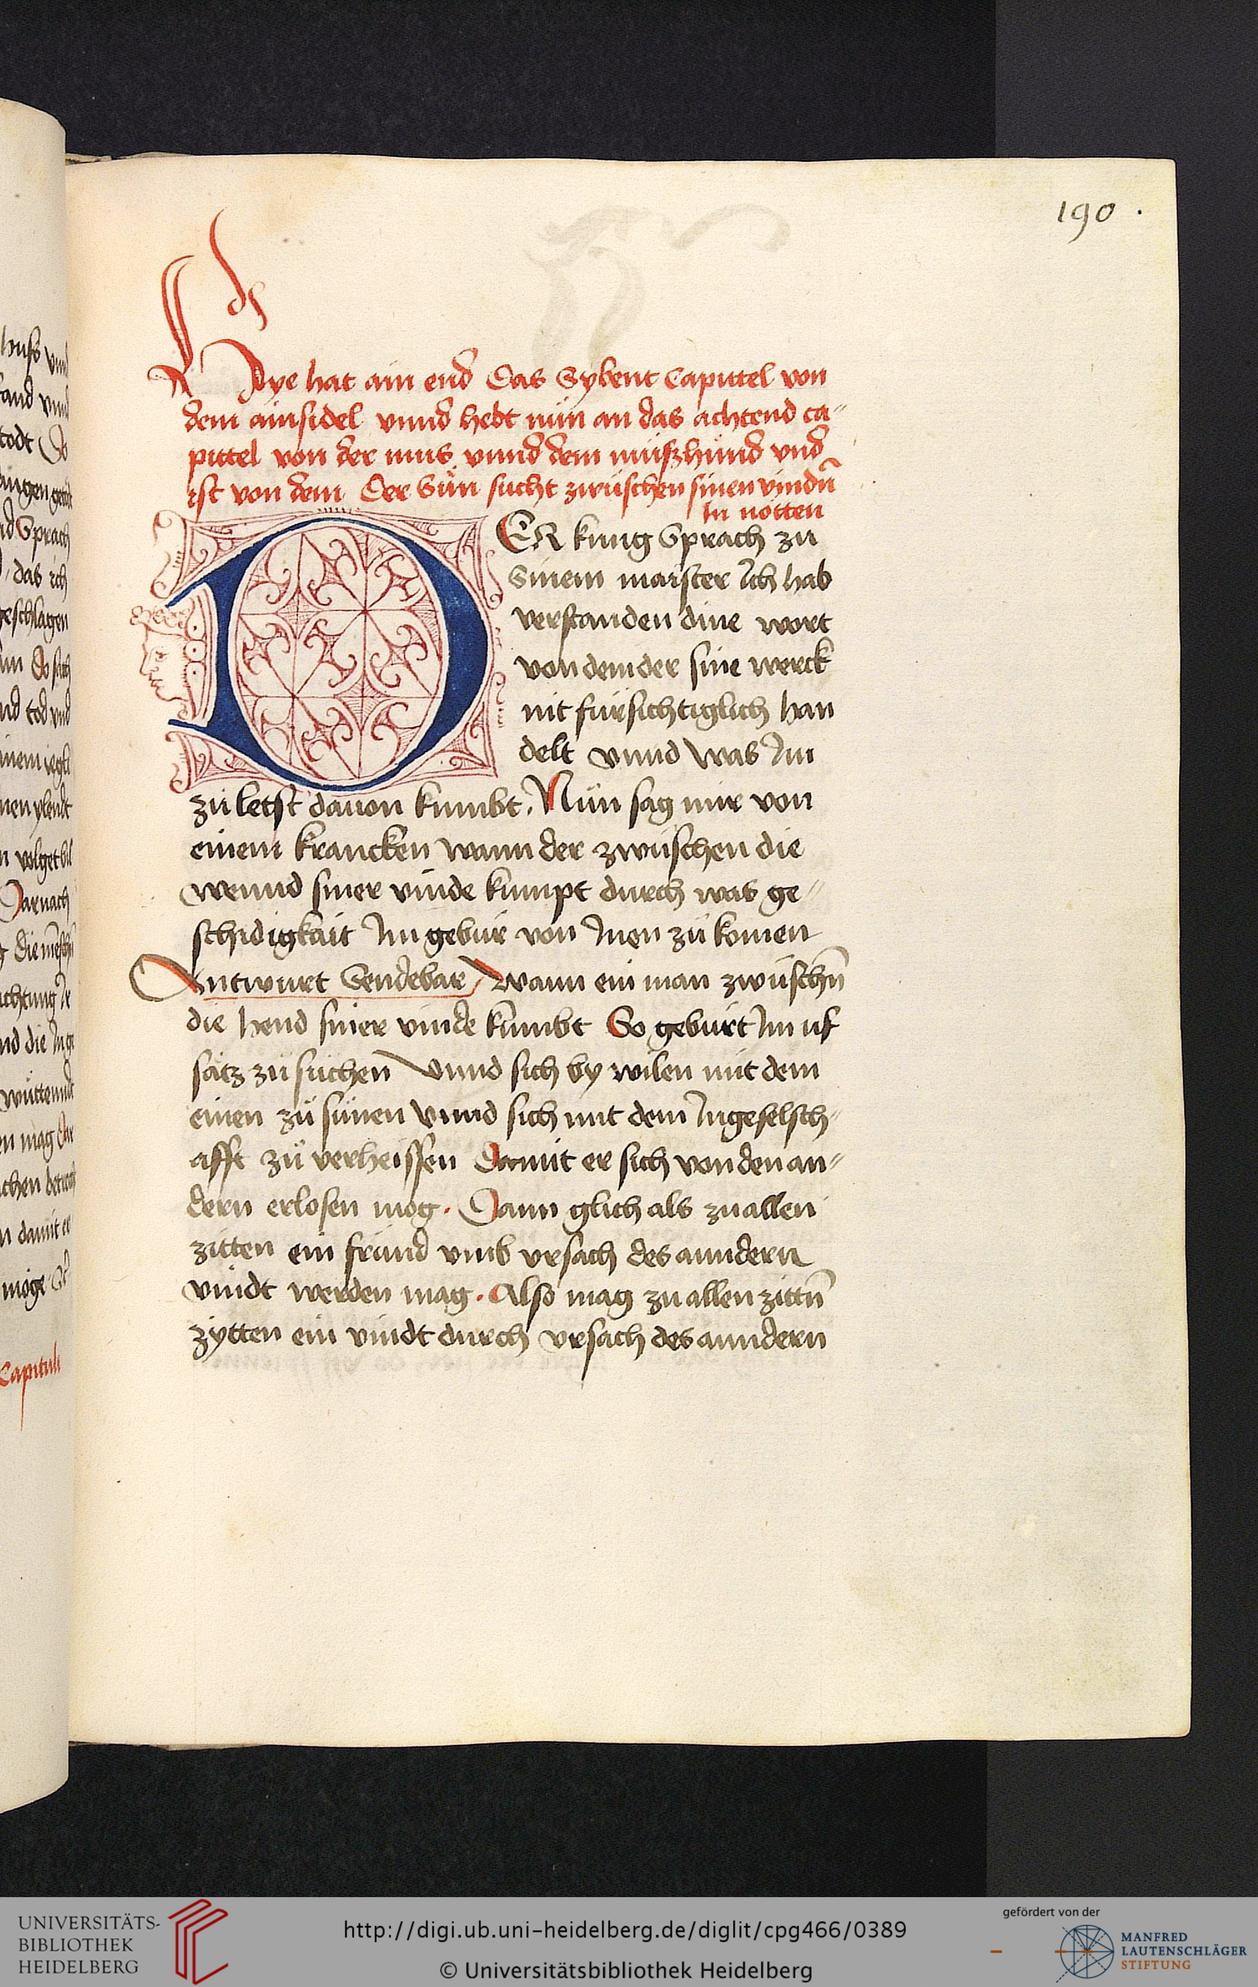 190 .
Hye hat ain end Das Sybent Capittel von
dem ainsidel vnnd hebt nün an das achtend ca„
pittel von der mus vnnd dem müszhünd vnd
ist von dem Der Sün sücht zwüschen sinen vindn̄
In nötten
DER küng Sprach zü
Sinem maister Ich hab
verstanden dine wort
von dem der sine werck
nit fürsichtiglich han
delt vnnd was Im
zü letst dauon kumbt. Nün sag mir von
einem krancken wann der zwüschen die
wennd siner vinde kumpt dürch was ge„
schidigkait Im gebür von Inen zü komen
Antwurt Sendebar / wann ein man zwüschn̄
die hend siner vinde kümbt So gebürt Im uf
sätz zü süchen vnnd sich by wilen mit dem
einen zü sünen vnnd sich mit dem In geselsch„
afft zü verheissen Damit er sich von den an„
dern erlosen mög. Dann glich als zu allen
zitten ein fründ vmb vrsach des anndern
vindt werden mag. Also mag zu allen zittn̄
zytten ein vindt dürch vrsach des anndern
Capitulu
UNIVERSITÄTS-
BIBLIOTHEK
HEIDELBERG
http://digi.ub.uni-heidelberg.de/diglit/cpg466/0389
© Universitätsbibliothek Heidelberg
gefördert von der
MANFRED
LAUTENSCHLÄGER
STIFTUNG